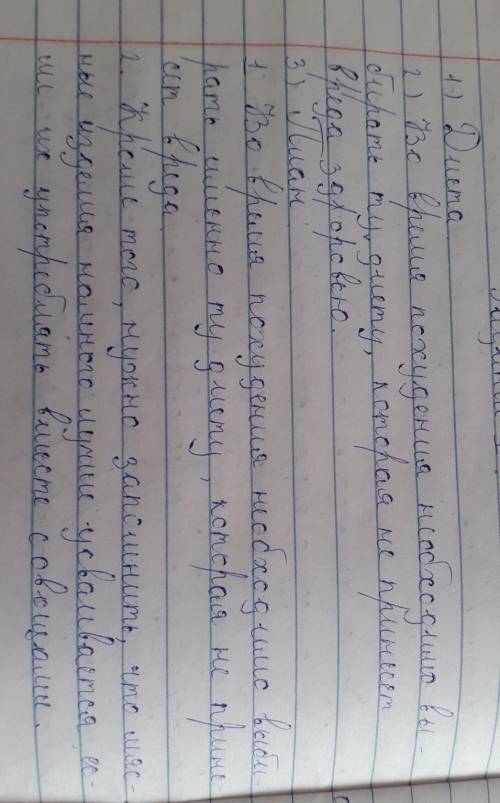 1) Диета
2) Во время похудения необходимо вы-
бирать ту диету, которая не принесет
вреда здоровью.
3) План
1. Во время похудения необходимо выби-
рать именно ту диету, которая не прине-
сет вреда.
2. Кроме того, нужно запомнить, что мяс-
ные изделия намного лучше усваивается, ес-
ли их употреблять вместе с овощами.